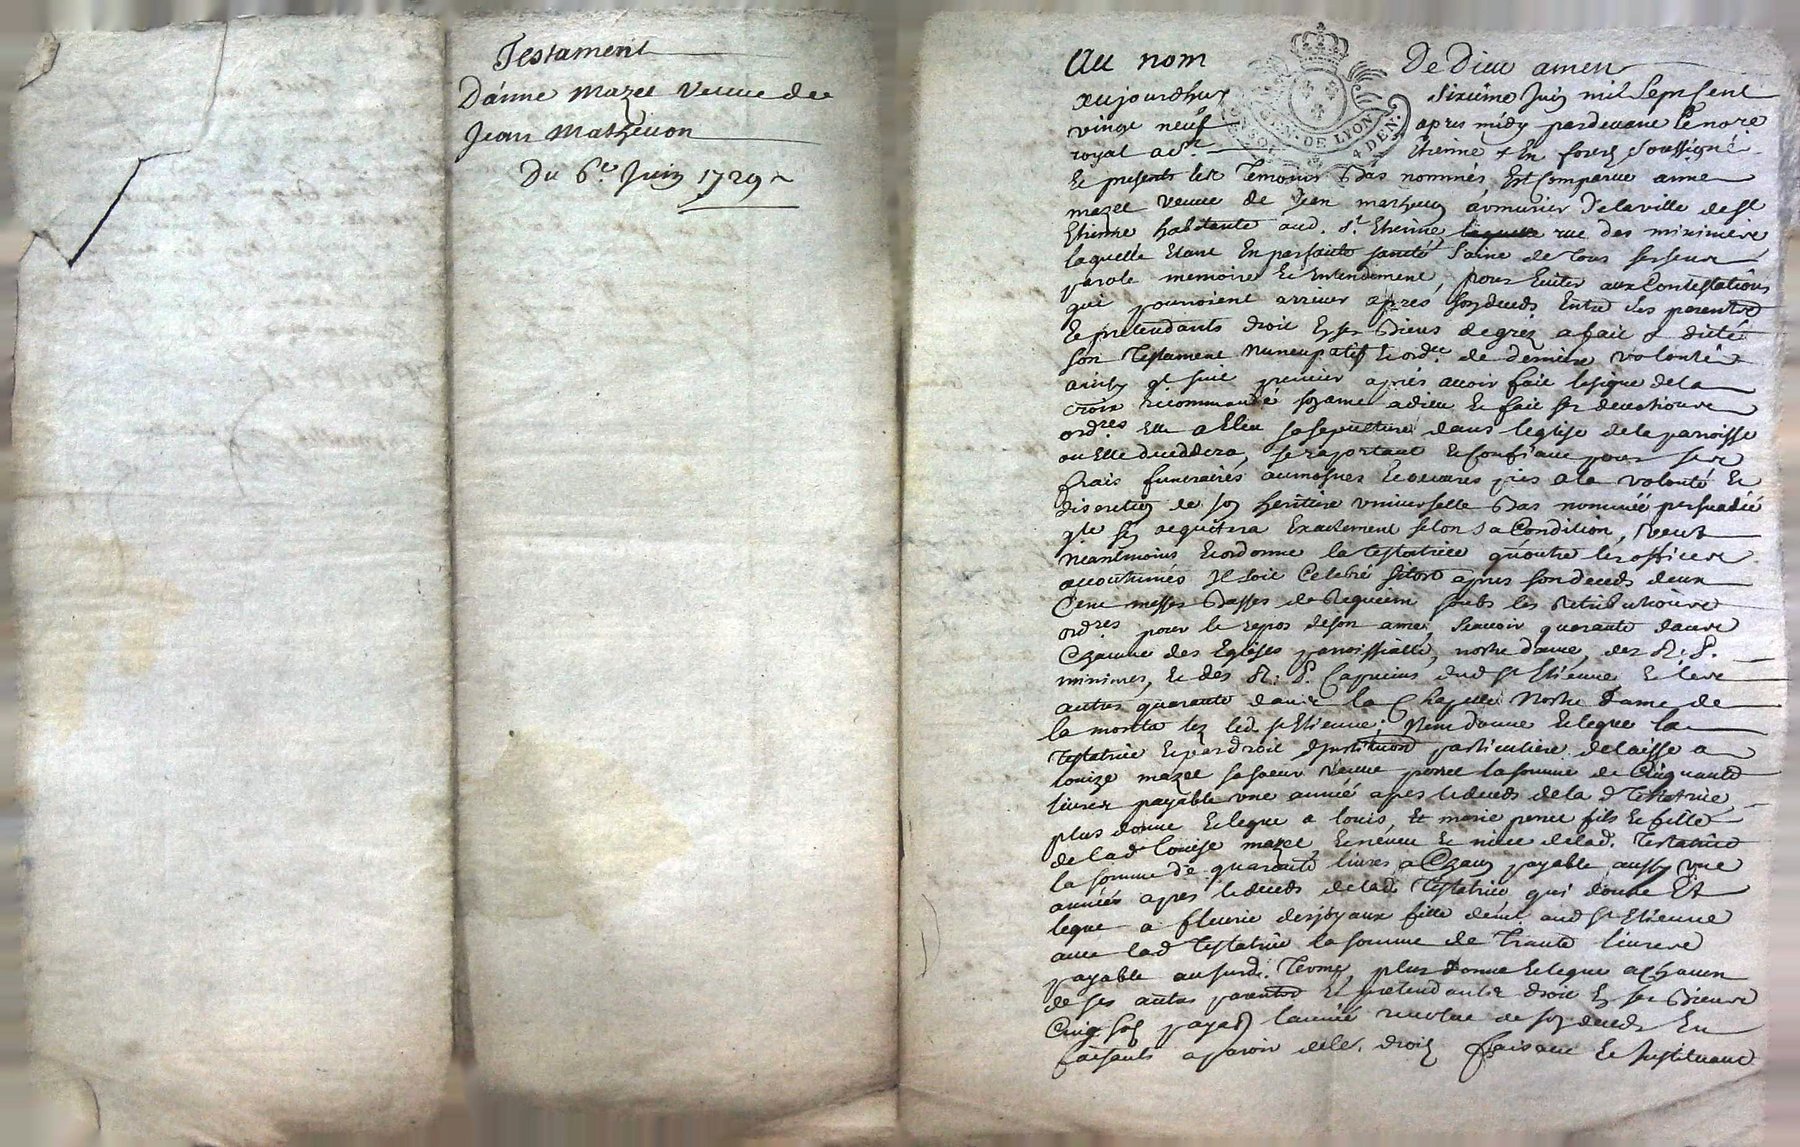 Testament
D'anne Mazet Veuve de
Jean Mathevon
Du 6e. Juin 1729
Au nom De Dieu amen
aujourdhuy sixième Juin mil sept cent
vingt neuf apres midy pardevant le nore
royal a St. étienne en forest soussigné
Et presents les temoins bas nommés, Est comparue anne
mazet veuve de Jean mathevon armurier de la ville de St
Etienne habitante aud. St. Etienne, rue des minimes
laquelle Etant En parfaite santé saine de tous ses sens
parole memoire Et Entendement, pour Eviter aux Contestations
qui pourroient arriver apres son deceds Entre ses parents
Et pretendants droit En ses biens de gréz a fait & dicté
son Testament Nuncupatif Et ordce de derniere volonté
ainsy qt suit premier après avoir fait le signe de la
croix recommandé son ame a dieu Et fait ses devotions
ordres Elle a Eleu sa sepulture dans l'eglise de la paroisse
ou Elle deceddera, se raportant Et confiant pour ses
frais funeraires aumosnes Et oeuvres pies a la volonté Et
discretion de son heritiere universelle bas nommée persuadée
qle sen aquitera Exactement selon sa Condition, Veut
neantmoins Et ordonne la testatrice qu'outre les offices
accoutumés Il soit Celebré sitost apres son deceds deux
Cent messes basses de Requiem soubs les retributions
ordres pour le repos de son ame, scavoir quarante dans
Chacune des Eglises paroissialle, nostre dame, des R. P.
minimes, Et des R. P. Capucins dud St Etienne Et les
autres quarante dans la Chapelle Nostre Dame de
la montat lez led. St Etienne; Item donne Et legue la
testatrice Et par droit d'Institution particuliere delaisse a
louize mazet sa soeur veuve perret la somme de Cinquante
livres payable une année apres le deceds de la de testatrice,
plus donne Et legue a louis, Et marie perret fils Et fille
de lade louise mazet, Et neveu Et niece de lad. testatrice
la somme de quarante livres a Chacun payable aussy une
année apres le deceds de lad. Testatrice qui donne Et
legue a fleurie desjoyaux fille demt aud St Etienne
avec lad Testatrice la somme de Trante livres
payable au susd. Terme, plus donne Et legue a Chacun
de ses autres parents Et pretendants droit En ses biens
Cinq sols payab lannée revolue de son deceds En
faisants aparoir de le. droit faisant Et Instituant